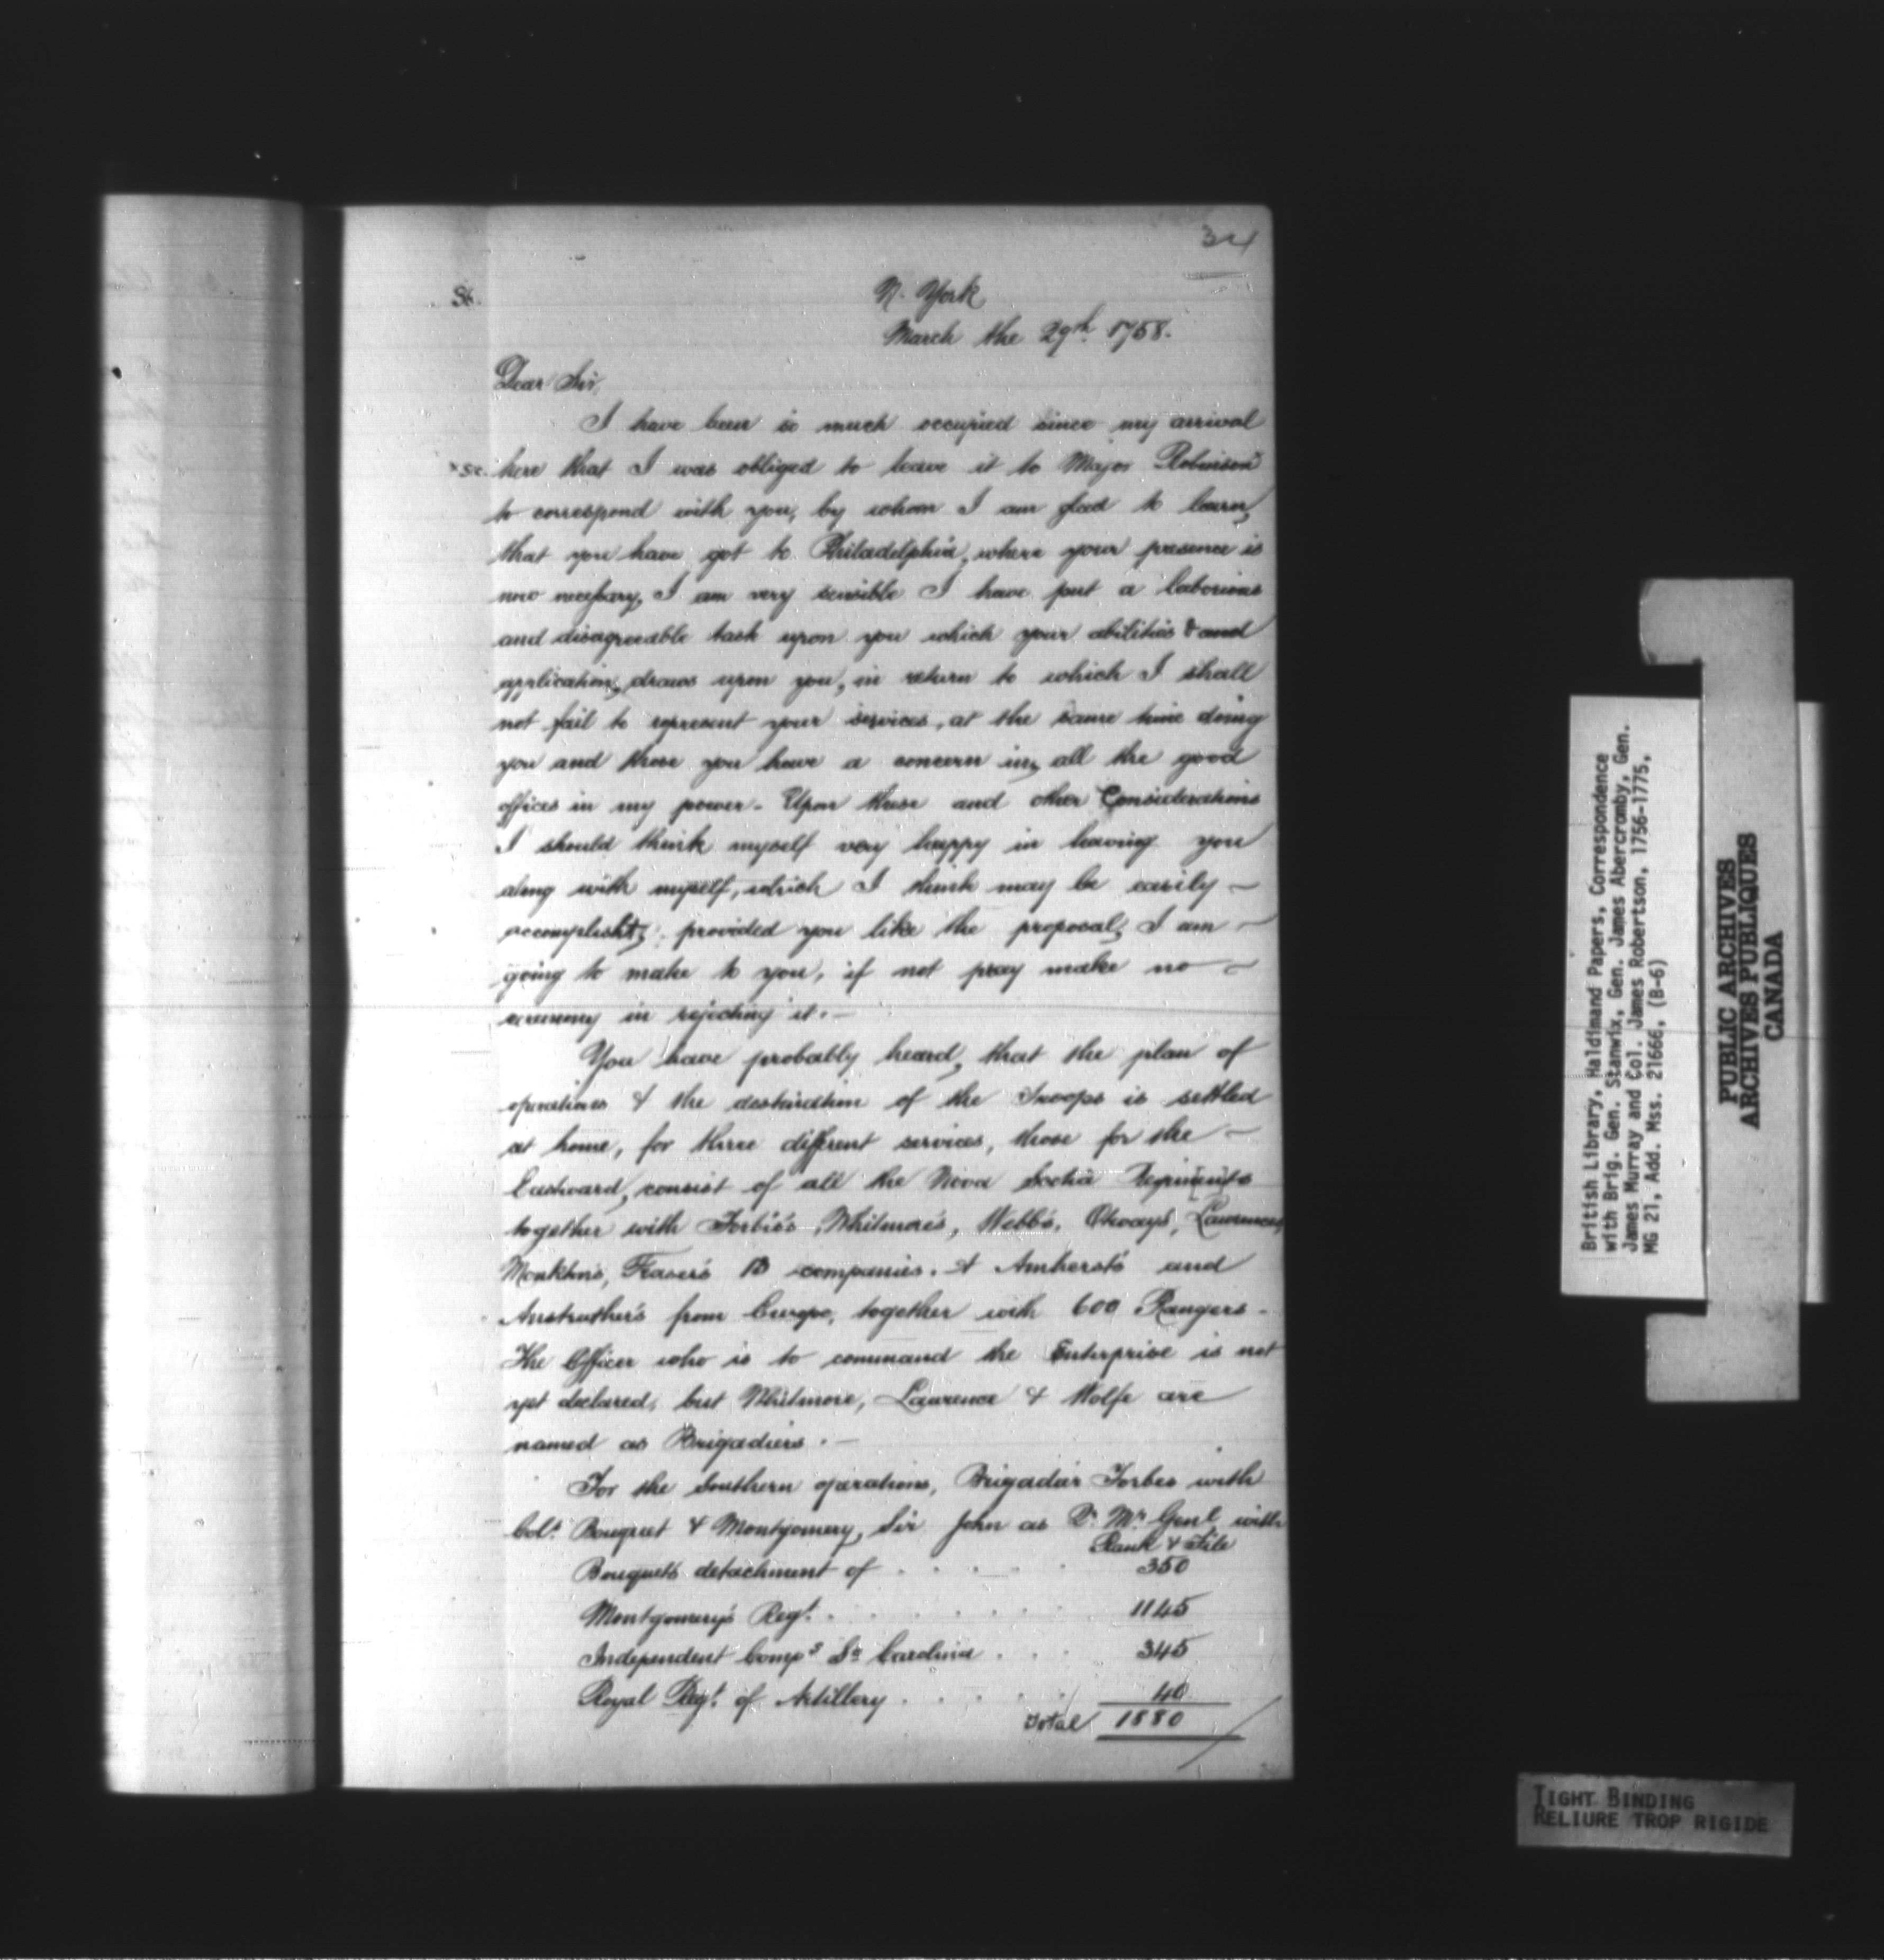 34
N. York
March the 29th. 1758.
Dear Sir,
I have been so much occupied since my arrival
here that I was obliged to leave it to Major Robinson
to correspond with you, by whom I am glad to learn,
that you have got to Philadelphia, where your presence is
now necessary, I am very sensible I have put a laborious
and disagreeable task upon you which your abilities & and
application, draws upon you, in return to which I shall
not fail to represent your services, at the same time doing
you and those you have a concern in, all the good
offices in my power. Upon these and other Considerations
I should think myself very happy in having you
along with myself, which I think may be easily
accomplisht, provided you like the proposal, I am
going to make to you, if not pray make no
ceremony in rejecting it. —
You have probably heard, that the plan of
operations & the destination of the Troops is settled
at home, for three different services, those for the
Eastward, consist of all the Nova Scotia Regiments
together with Forbes's, Whitmore's, Webb's, Otways', Lawrences,
Monkton's, Fraser's 13 companies. & Amherst's and
Anstruther's from Europe, together with 600 Rangers -
The Officer who is to command the Enterprise is not
yet declared, but Whitmore, Lawrence & Wolfe are
named as Brigadiers. —
For the Southern operations, Brigadier Forbes with
Cols. Bouquet & Montgomery, Sir John as Q. Mr. Genl. with
Rank & File
Bouquets detachment of . . . . . 350
Montgomery's Regt. . . . . . . 1145
Independent Comps So Carolina . . . 345
Royal Regt. of Artillery . . . . . 40
Total 1880
British Library, Haldimand Papers, Correspondence
with Brig. Gen. Stanwix, Gen. James Abercromby, Gen.
James Murray and Col. James Robertson, 1756-1775,
MG 21, Add. Mss. 21666, (B-6)
PUBLIC ARCHIVES
ARCHIVES PUBLIQUES
CANADA
TIGHT BINDING
RELIURE TROP RIGIDE